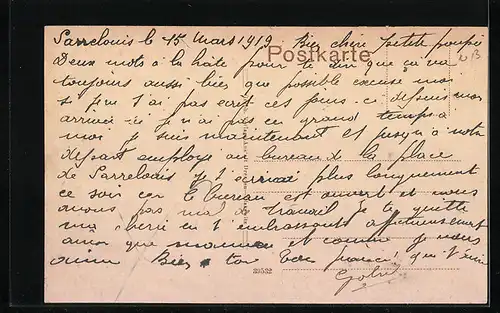 Sarrelouis le 15 Mars 1919 Bien chère petite poupée
Postkarte
Deux mots à la hâte pour te dire que ça va
toujours aussi bien que possible excuse moi
si je ne t'ai pas écrit ces jours-ci depuis mon
arrivée ici je n'ai pas eu grand temps à
moi je suis maintenant et jusqu'à notre
départ employé au bureau de la place
de Sarrelouis je t'écrirai plus longuement
ce soir car le bureau est ouvert et nous
avons pas mal de travail Je te quitte
ma chérie en t'embrassant affectueusement
ainsi que maman et comme je vous
aime Bien à toi ton qui t'aime
39532